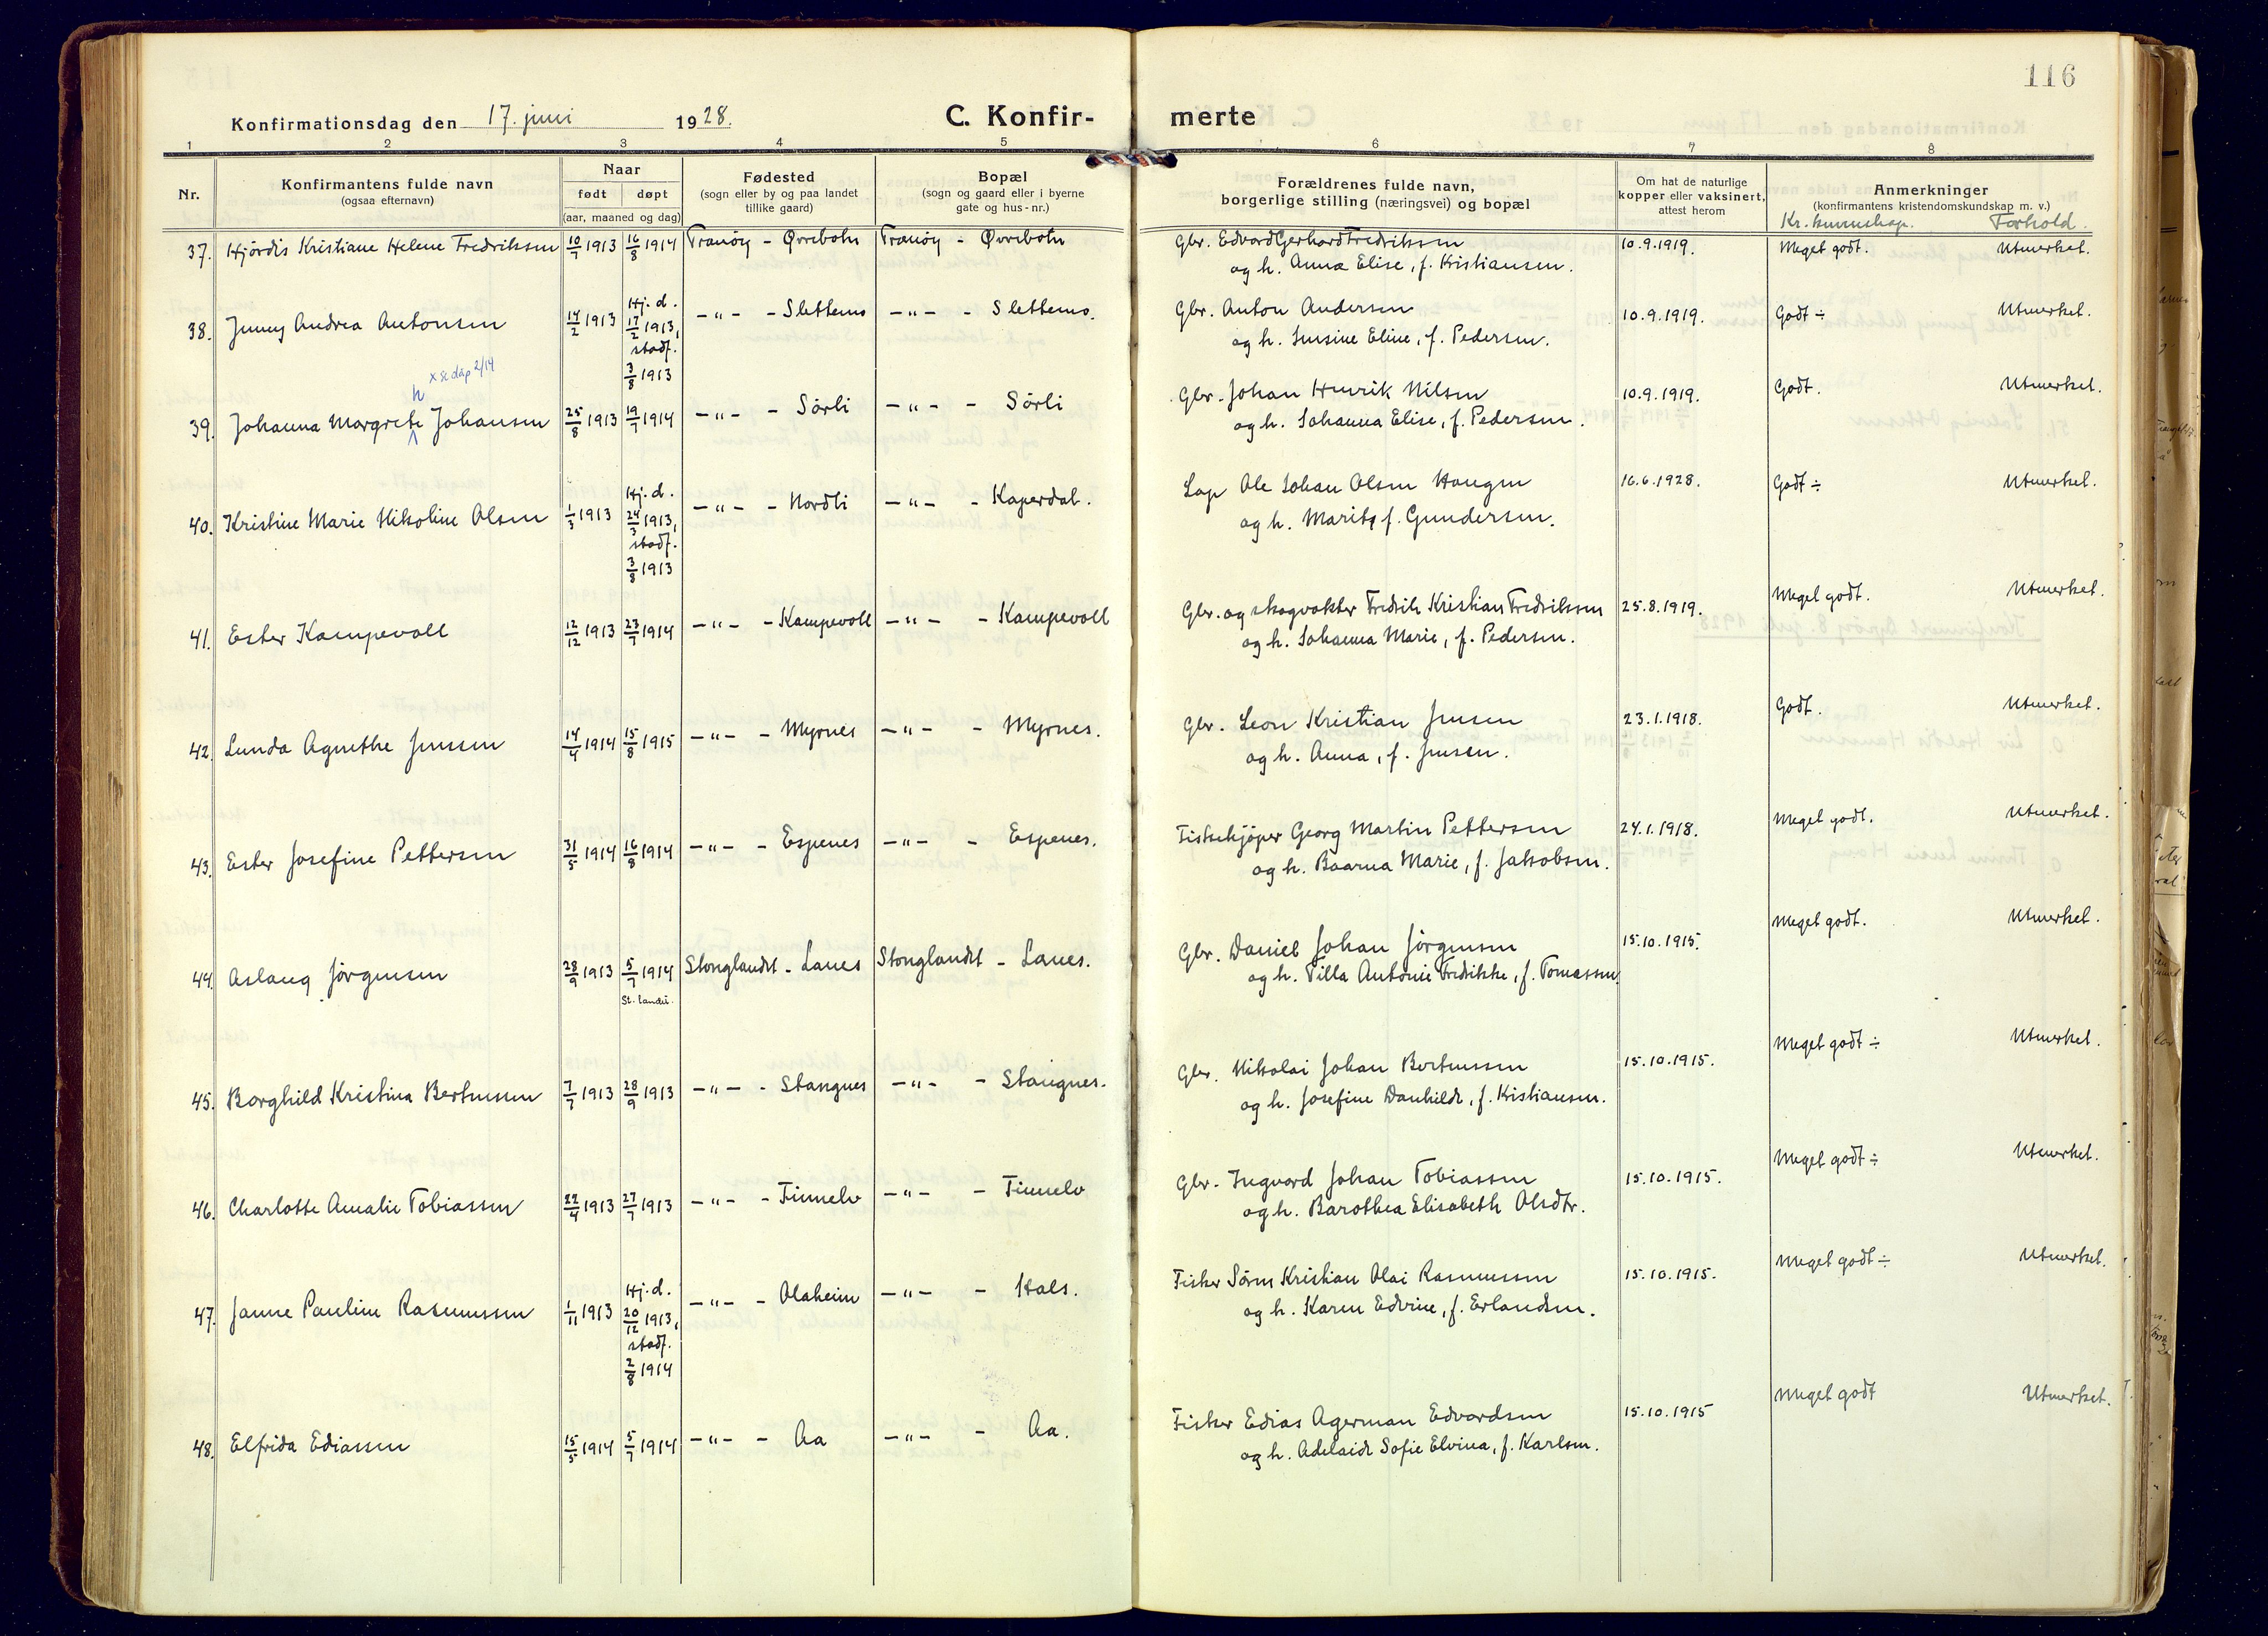 116
Konfirmationsdag den 17. juni 1928.
C. Konfirmerte
1 2 3 4 5 6 7 8
Nr.
Konfirmantens fulde navn
(ogsaa efternavn)
Naar
født døpt
(aar, maaned og dag)
Fødested
(sogn eller by og paa landet
tillike gaard)
Bopæl
(sogn og gaard eller i byerne
gate og hus-nr.)
Forældrenes fulde navn,
borgerlige stilling (næringsvei) og bopæl
Om hat de naturlige
kopper eller vaksinert,
attest herom
Anmerkninger
(konfirmantens kristendomskundskap m. v.)
Kr. kunnskap. Forhold.
37. Hjördis Kristiane Helene Fredriksen 10/7 1913 16/8 1914 Tranöy - Øvrebotn Tranöy - Øvrebotn Gbr. Edvard Gerhard Fredriksen 10.9.1919. Meget godt. Utmerket.
og h. Anna Elise, f. Kristiansen.
38. Jenny Andrea Antonsen 14/2 1913 Hj. d. 17/2 1913, stadf. 3/8 1913 -"- - Slettemo -"- - Slettemo. Gbr. Anton Andersen 10.9.1919. Godt ÷ Utmerket.
og h. Jensine Eline, f. Pedersen.
x se dåp 2/14
h
39. Johanna Margrete Johansen 25/8 1913 19/7 1914 -"- - Sörli -"- - Sörli Gbr. Johan Henrik Nilsen 10.9.1919. Godt. Utmerket.
og h. Johanna Elise, f. Pedersen.
40. Kristine Marie Nikoline Olsen 1/3 1913 Hj. d. 24/3 1913, stadf. 3/8 1913 -"- - Nordli -"- - Kaperdal. Lap Ole Johan Olsen Haugen 16.6.1928. Godt ÷ Utmerket.
og h. Marit, f. Gundersen.
41. Ester Kampevoll 12/12 1913 23/7 1914 -"- - Kampevoll -"- - Kampevoll Gbr. og skogvokter Fredrik Kristian Fredriksen 25.8.1919. Meget godt. Utmerket.
og h. Johanna Marie, f. Pedersen.
42. Lunda Agnethe Jensen 14/4 1914 15/8 1915 -"- - Myrnes -"- - Myrnes. Gbr. Leon Kristian Jensen 23.1.1918. Godt. Utmerket.
og h. Anna, f. Jensen.
43. Ester Josefine Pettersen 31/5 1914 16/8 1914 -"- - Espenes -"- - Espenes. Fiskekjöper Georg Martin Pettersen 24.1.1918. Meget godt. Utmerket.
og h. Baarna Marie, f. Jakobsen.
44. Aslaug Jörgensen 28/9 1913 5/7 1914 St. landet. Stonglandet - Lanes Stonglandet - Lanes. Gbr. Daniel Johan Jörgensen 15.10.1915. Meget godt. Utmerket.
og h. Tilla Antonie Fredrikke, f. Tomassen.
45. Borghild Kristina Berntsen 7/7 1913 28/9 1913 -"- - Stangnes -"- - Stangnes. Gbr. Nikolai Johan Berntsen 15.10.1915. Meget godt ÷ Utmerket.
og h. Josefine Danhilde, f. Kistiansen.
46. Charlotte Amalie Tobiassen 22/4 1913 27/7 1913 -"- - Finnelv -"- - Finnelv Gbr. Ingvard Johan Tobiassen 15.10.1915. Meget godt ÷ Utmerket.
og h. Barothea Elisabeth Olsdtr.
47. Janne Pauline Rasmussen 1/11 1913 Hj. d. 20/12 1913, stadf. 2/8 1914 -"- - Olaheim -"- - Hals. Fisker Sören Kristian Olai Rasmussen 15.10.1915. Meget godt ÷ Utmerket.
og h. Karen Edvine, f. Erlandsen.
48. Elfrida Ediassen 15/5 1914 5/7 1914 -"- - Aa -"- - Aa. Fisker Edias Agerman Edvardsen 15.10.1915 Meget godt Utmerket.
og h. Adelaide Sofie Elvina, f. Karlsen.